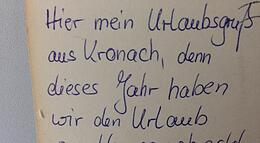 Hier mein Urlaubsgruß
aus Kronach, denn
dieses Jahr haben
wir den Urlaub